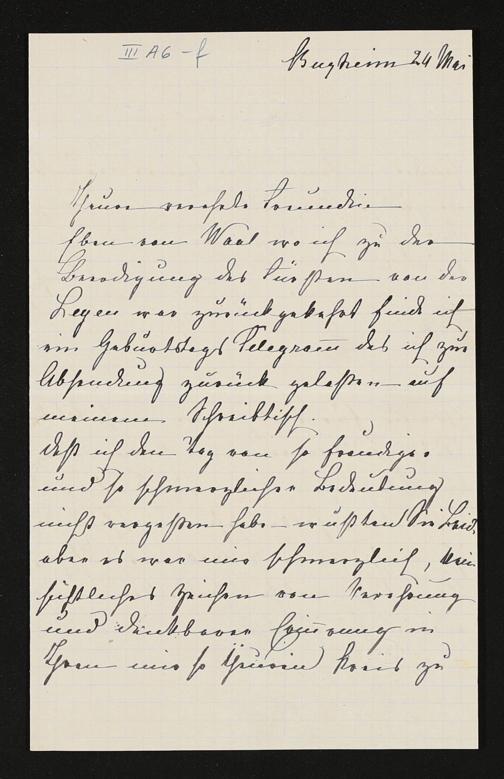 III A6 - f
Bugheim 24 Mai
Theure verehrte Freundin
Eben von Waal wo ich zu der
Beerdigung des Fürsten von der
Leyen war zurückgekehrt finde ich
ein Geburtstags Telegram̄ das ich zur
Absendung zurück gelassen auf
meinem Schreibtisch.
Daß ich den Tag von so freudiger
und so schmerzlicher Bedeutung
nicht vergessen habe – wußten Sie
aber es war mir schmerzlich, kein
sichtliches Zeichen von Verehrung
und dankbarer Erin̄erung in
Ihren mir so theuren Kreis zu